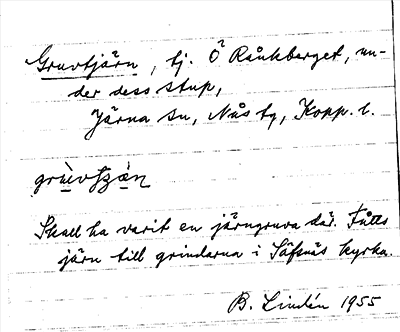 Gruvtjärn, tj. Ö Råckberget, un-
der dess stup,
Järna sn, Nås tg, Kopp. l.
grùvſʒä̀n
Skall ha varit en järngruva där. Fått
järn till grindarna i Säfsnäs kyrka.
B. Lindén 1955